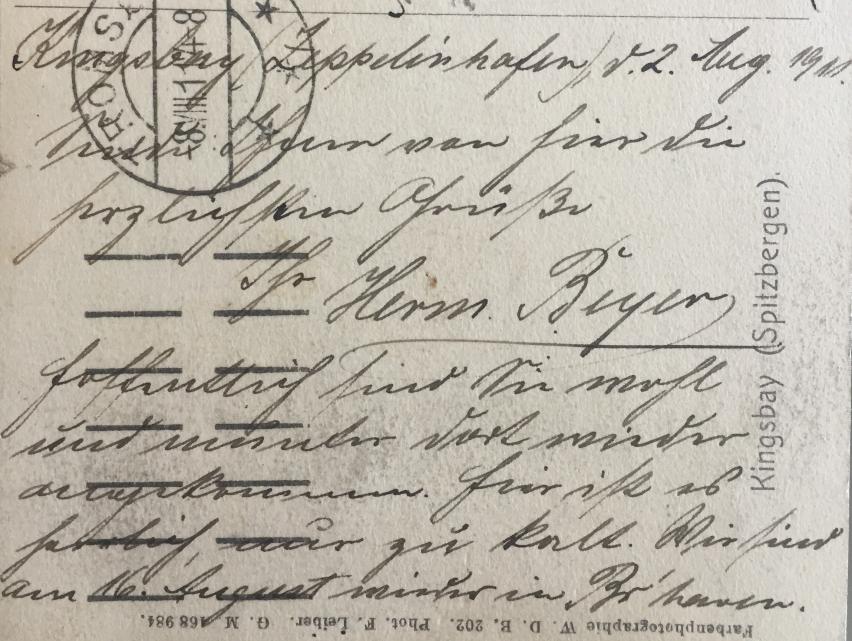 Kingsbay (Zeppelinhafen) d. 2. Aug. 1911.
Sende Ihnen von hier die
herzlichsten Grüße
Ihr Herm. Beyer
Hoffentlich sind Sie wohl
und munter dort wieder
angekommen. Hier ist es
herrlich, nur zu kalt. Wir sind
am 16. August wieder in Br'haven.
Kingsbay (Spitzbergen).
Farbenphotographie W. D. B. 202. Phot. F. Leiber. G. M. 468 984.
ROIS
-8.VIII.11.4-8